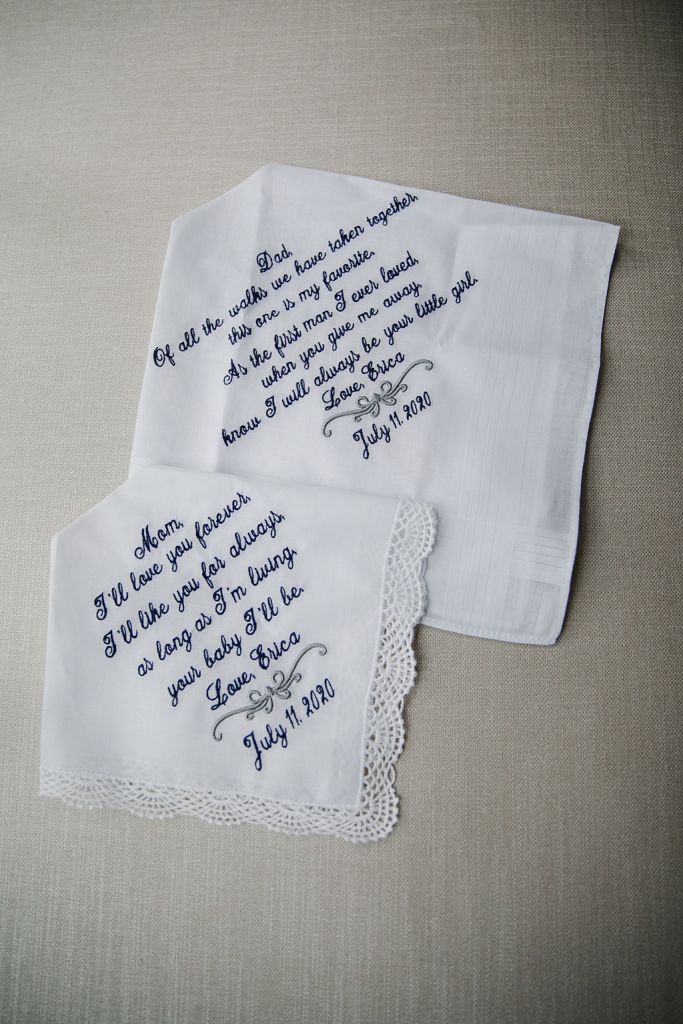 Dad,
Of all the walks we have taken together,
this one is my favorite.
As the first man I ever loved,
when you give me away,
know I will always be your little girl.
Love, Erica
July 11, 2020
Mom,
I'll love you forever,
I'll like you for always,
as long as I'm living,
your baby I'll be.
Love, Erica
July 11, 2020